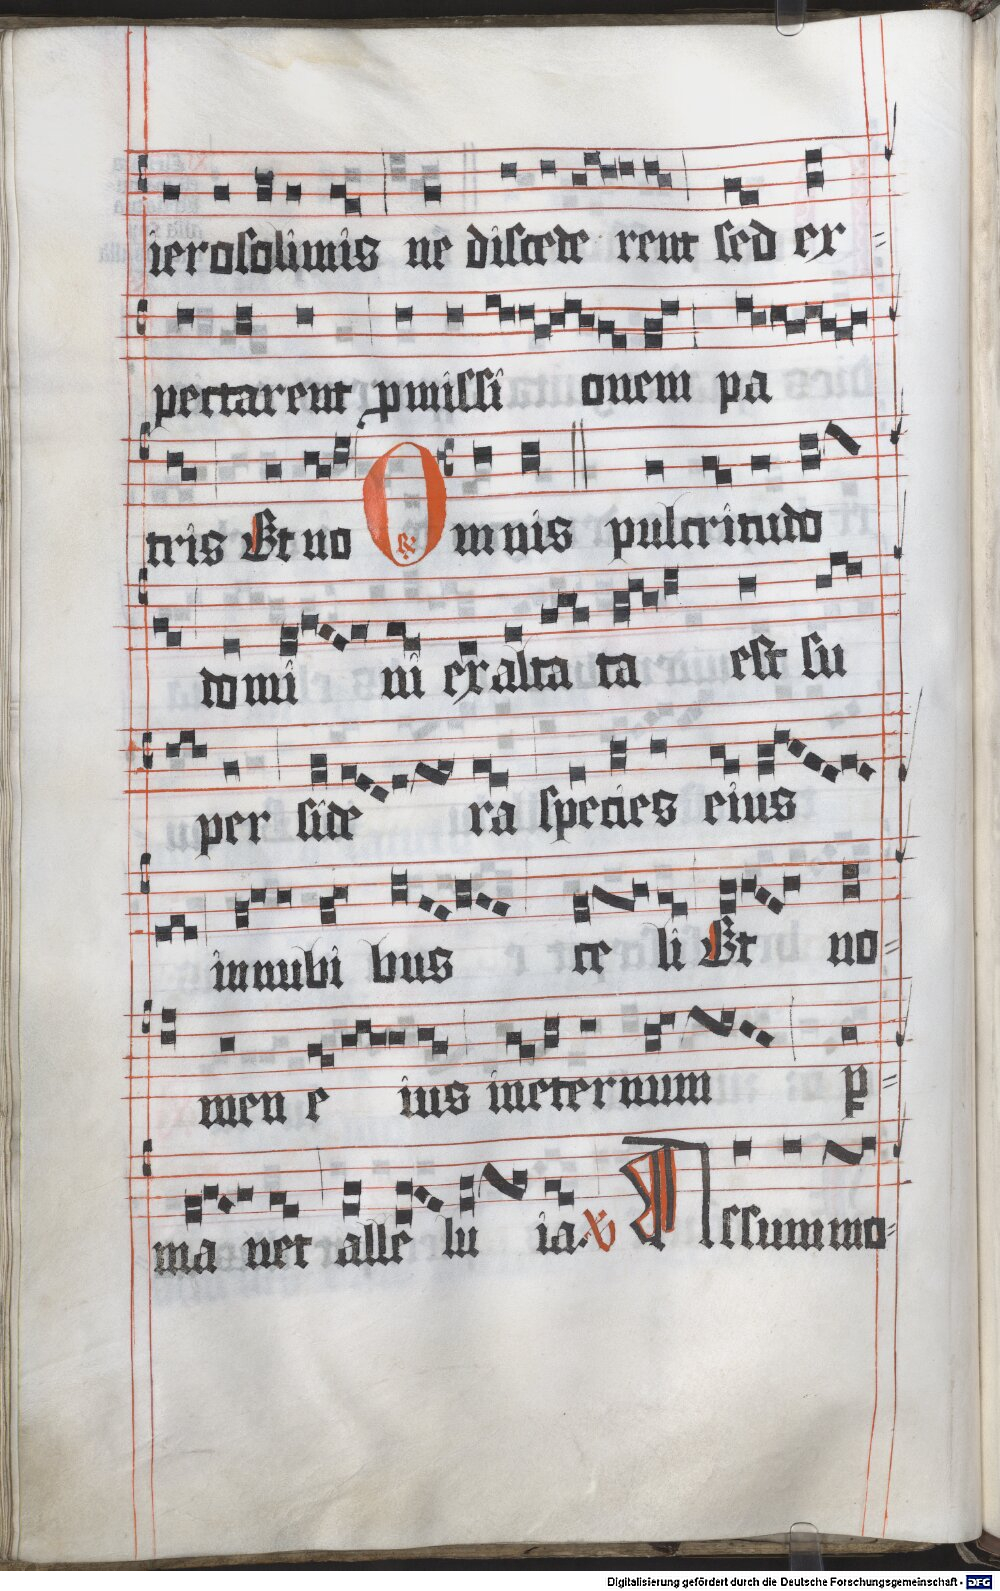 ierosolimis ne discede rent sed ex=
pectarent ꝓmissi onem pa
tris Et uo Omnis pulcritudo
domi ni exalta ta est su
per side ra species eius
innubi bus ce li Et no=
men e ius ineternum p=
ma net alle lu ia. V A ssummo=
Digitalisierung gefördert durch die Deutsche Forschungsgemeinschaft - DFG